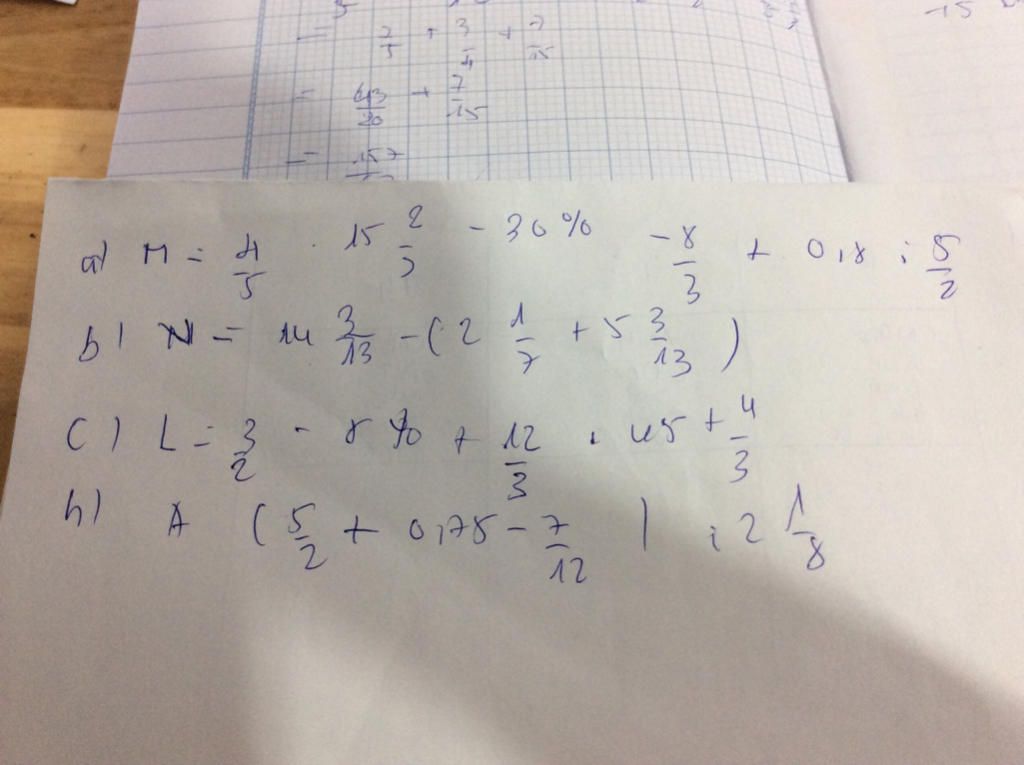 = 2/5 + 3/4 + 7/15
= 43/20 + 7/15
= 157
-15
a) M = 4/5 . 15 2/3 - 30% - 8/3 + 0,8 : 5/2
b) N = 14 3/13 - ( 2 1/7 + 5 3/13 )
c) L = 3/2 - 8% + 12/3 . 45 + 4/3
h) A ( 5/2 + 0,75 - 7/12 ) : 2 1/8